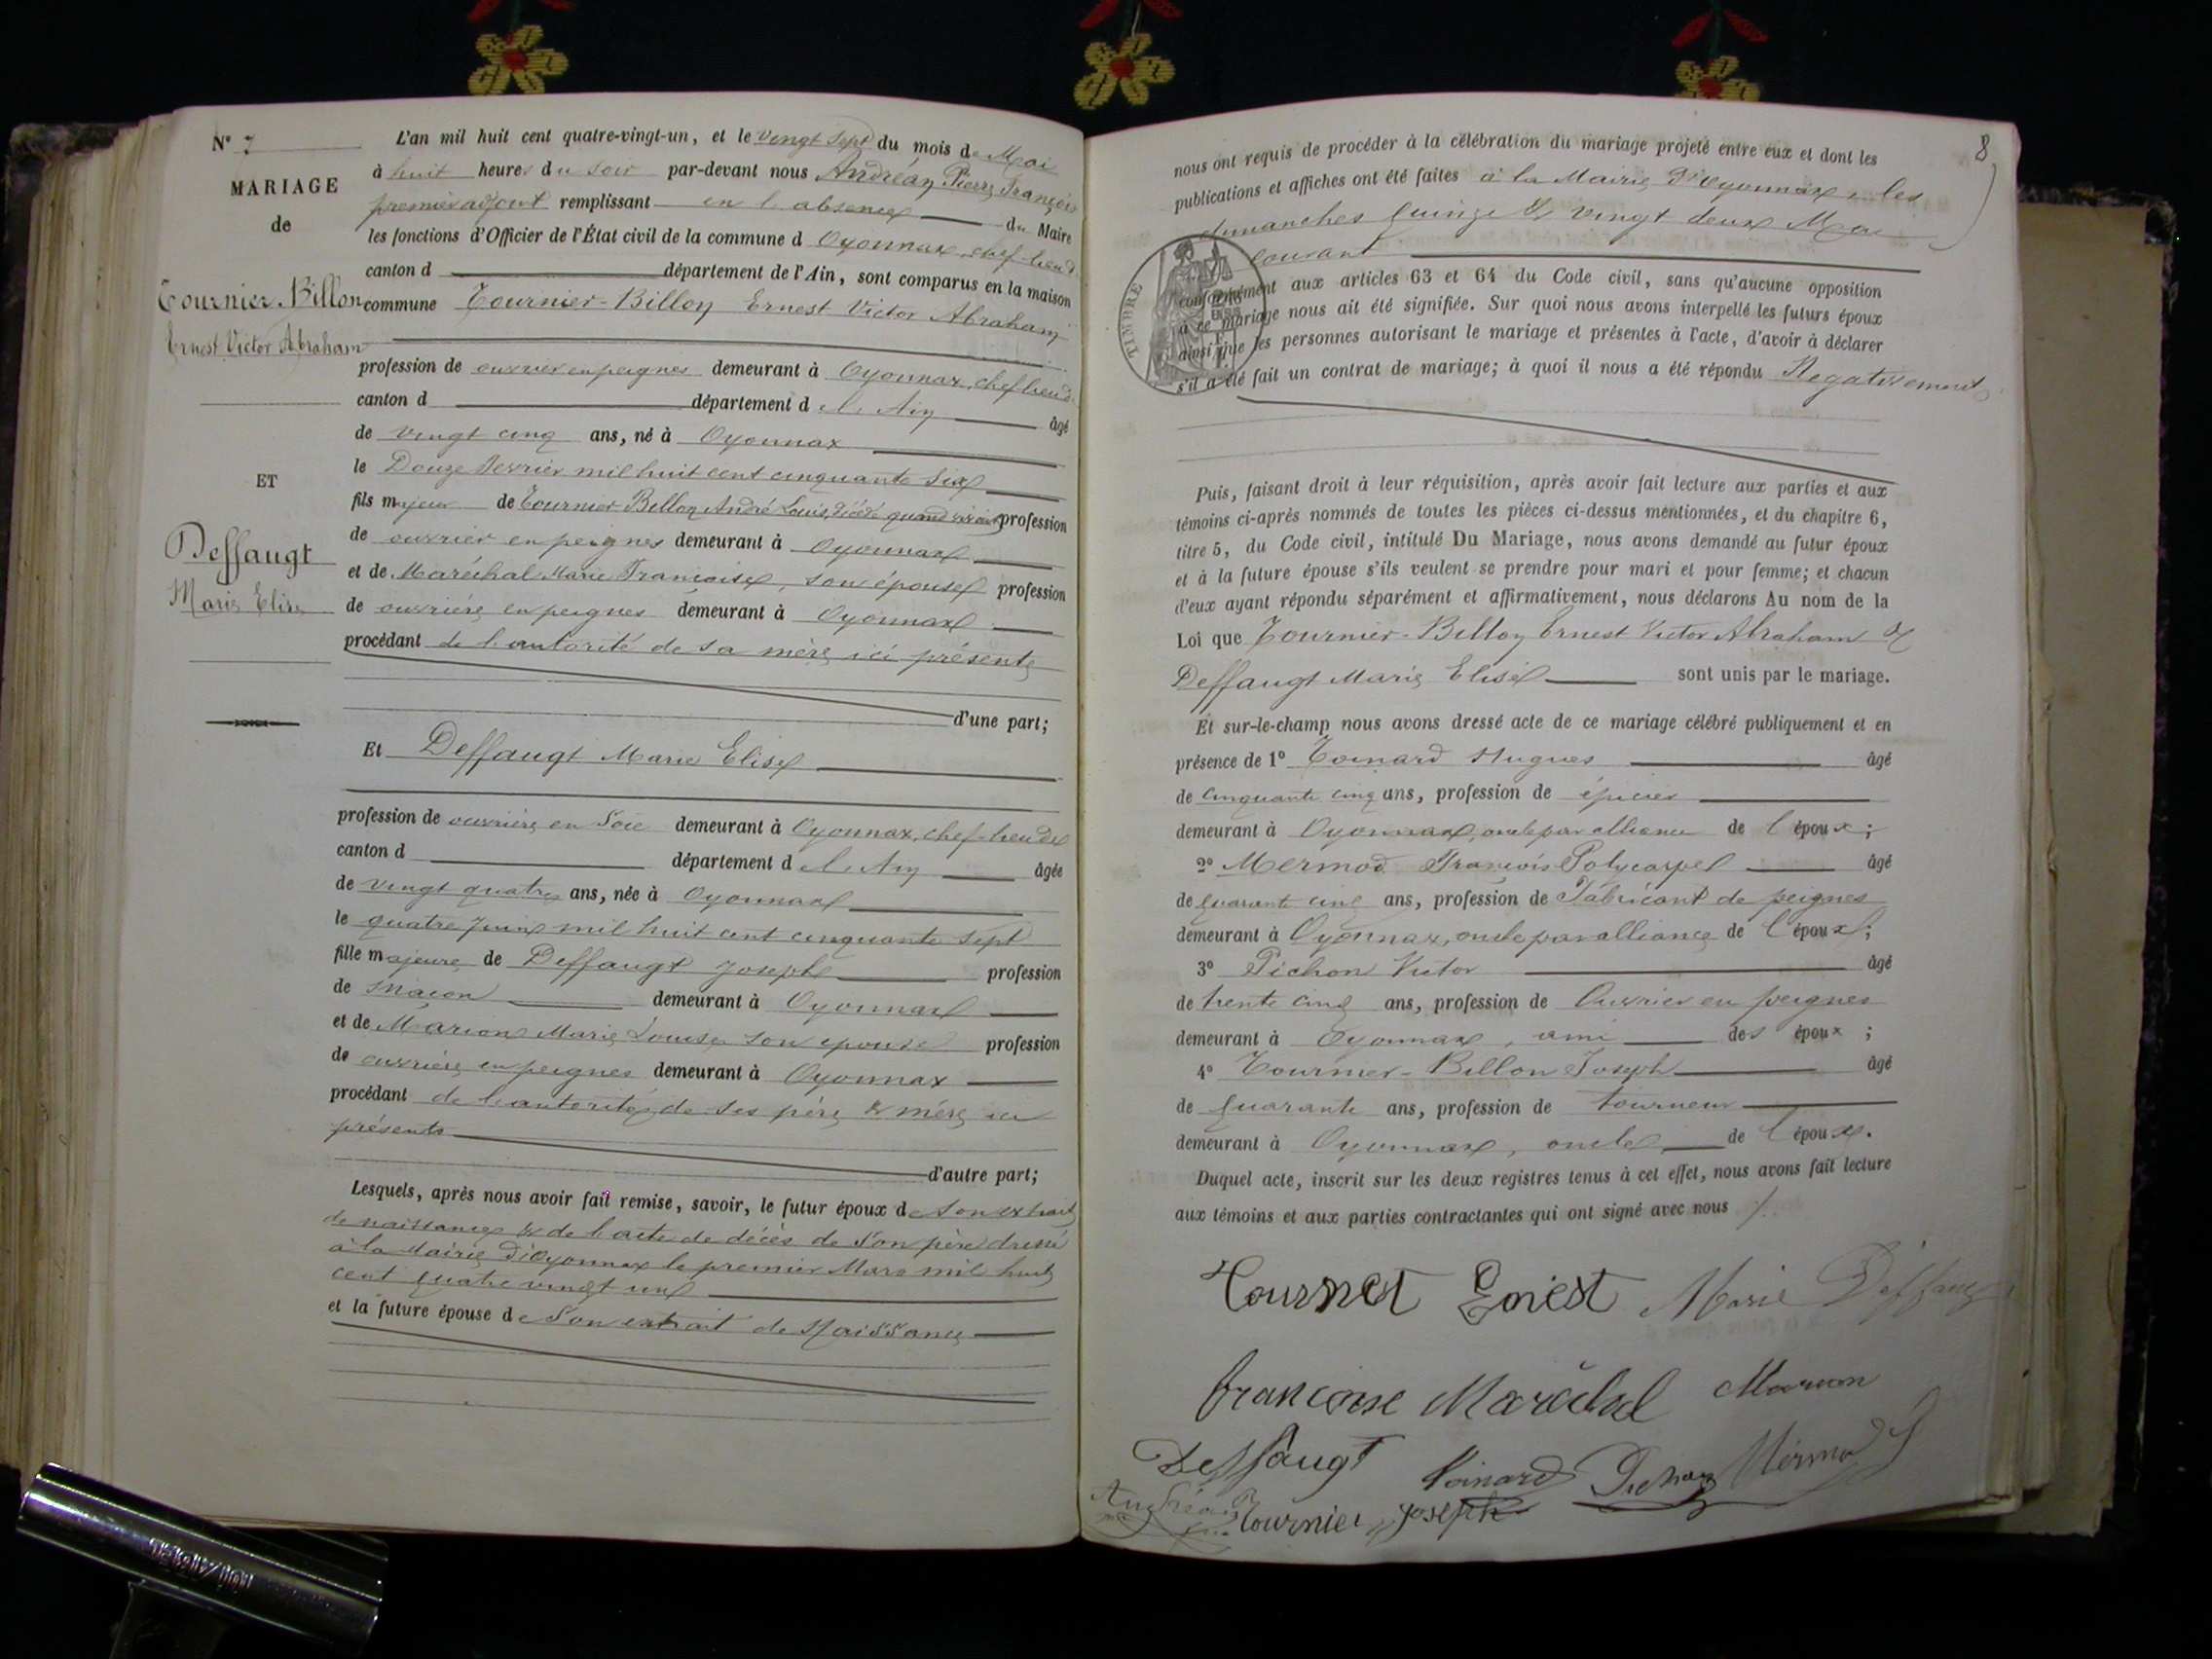 N° 7
MARIAGE
de
Tournier-Billon
Ernest Victor Abraham
ET
Deffaugt
Marie Elise
L'an mil huit cent quatre-vingt-un, et le vingt sept du mois de Mai
à huit heures du soir par-devant nous Andréan Pierre François
premier adjoint remplissant en l'absence du Maire
les fonctions d'Officier de l'État civil de la commune d Oyonnax, chef-lieu de
canton d département de l'Ain, sont comparus en la maison
commune Tournier-Billon Ernest Victor Abraham
profession de ouvrier en peignes demeurant à Oyonnax, chef lieu de
canton d département d e l'Ain âgé
de vingt cinq ans, né à Oyonnax
le Douze Février mil huit cent cinquante six
fils majeur de Tournier-Billon André Louis, décédé quand vivait profession
de ouvrier en peignes demeurant à Oyonnax
et de Maréchal Marie Françoise, son épouse profession
de ouvrière en peignes demeurant à Oyonnax
procédant de l'autorité de sa mère ici présente
d'une part;
Et Deffaugt Marie Elise
profession de ouvrière en Soie demeurant à Oyonnax, chef-lieu de
canton d département d e l'Ain âgée
de vingt quatre ans, née à Oyonnax
le quatre Juin mil huit cent cinquante sept
fille majeure de Deffaugt Joseph profession
de maçon demeurant à Oyonnax
et de Marion Marie Louise son épouse profession
de ouvrière en peignes demeurant à Oyonnax
procédant de l'autorité de ses père & mère ici
présents
d'autre part;
Lesquels, après nous avoir fait remise, savoir, le futur époux de son extrait
de naissance & de l'acte de décès de son père dressé
à la Mairie d'Oyonnax le premier Mars mil huit
cent quatre vingt un
et la future épouse de son extrait de Naissance
8
nous ont requis de procéder à la célébration du mariage projeté entre eux et dont les
publications et affiches ont été faites à la Mairie d'Oyonnax les
dimanches quinze & vingt deux Mai
courant
TIMBRE
conformément aux articles 63 et 64 du Code civil, sans qu'aucune opposition
à ce mariage nous ait été signifiée. Sur quoi nous avons interpellé les futurs époux
ainsi que les personnes autorisant le mariage et présentes à l'acte, d'avoir à déclarer
s'il a été fait un contrat de mariage; à quoi il nous a été répondu Negativement
Puis, faisant droit à leur réquisition, après avoir fait lecture aux parties et aux
témoins ci-après nommés de toutes les pièces ci-dessus mentionnées, et du chapitre 6,
titre 5, du Code civil, intitulé Du Mariage, nous avons demandé au futur époux
et à la future épouse s'ils veulent se prendre pour mari et pour femme; et chacun
d'eux ayant répondu séparément et affirmativement, nous déclarons Au nom de la
Loi que Tournier-Billon Ernest Victor Abraham &
Deffaugt Marie Elise sont unis par le mariage.
Et sur-le-champ nous avons dressé acte de ce mariage célébré publiquement et en
présence de 1° Toinard Hugues âgé
de cinquante cinq ans, profession de épicier
demeurant à Oyonnax, oncle par alliance de l'époux;
2° Mermod François Polycarpe âgé
de quarante cinq ans, profession de Fabricant de peignes
demeurant à Oyonnax, oncle par alliance de l'époux;
3° Pichon Victor âgé
de trente cinq ans, profession de Ouvrier en peignes
demeurant à Oyonnax, ami des époux;
4° Tournier-Billon Joseph âgé
de quarante ans, profession de tourneur
demeurant à Oyonnax, oncle de l'époux.
Duquel acte, inscrit sur les deux registres tenus à cet effet, nous avons fait lecture
aux témoins et aux parties contractantes qui ont signé avec nous
Tournier Ernest Marie Deffaugt
françoise Maréchal Marion
Deffaugt Toinard Pichon Mermod
Andréan Tournier Joseph